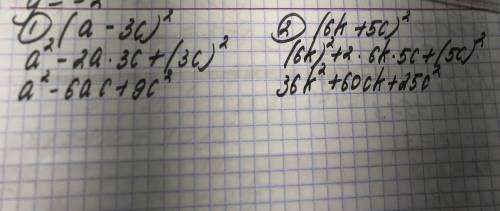 ① (a - 3c)²
a² - 2a · 3c + (3c)²
a² - 6ac + 9c²
② (6k + 5c)²
(6k)² + 2 · 6k · 5c + (5c)²
36k² + 60ck + 25c²